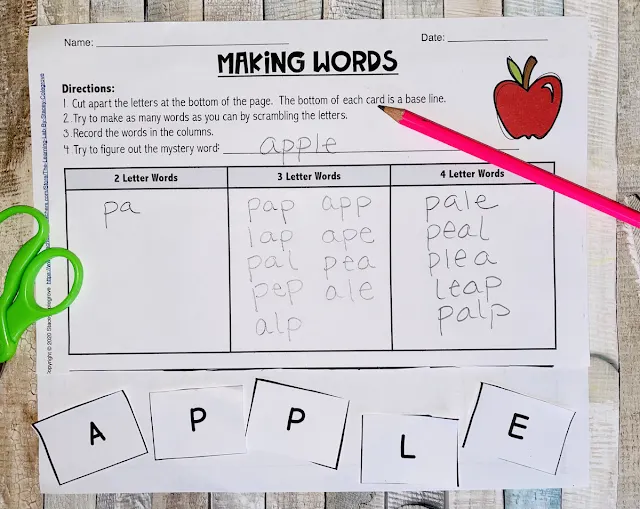 Name:
Date:
MAKING WORDS
Directions:
1. Cut apart the letters at the bottom of the page. The bottom of each card is a base line.
2. Try to make as many words as you can by scrambling the letters.
3. Record the words in the columns.
4. Try to figure out the mystery word: apple
2 Letter Words 3 Letter Words 4 Letter Words
pa pap app pale
lap ape peal
pal pea plea
pep ale leap
alp palp
A P P L E